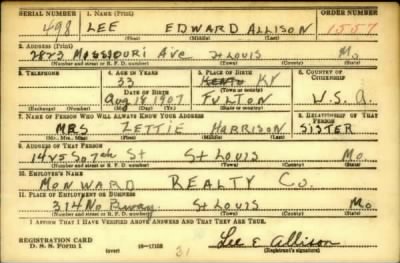 SERIAL NUMBER 1. NAME (Print) ORDER NUMBER
498 LEE EDWARD ALLISON 1557
2. ADDRESS (Print)
2823 MISSOURI AVE ST LOUIS Mo
(Number and street or R. F. D. number) (Town) (County) (State)
3. TELEPHONE 4. AGE IN YEARS 5. PLACE OF BIRTH 6. COUNTRY OF CITIZENSHIP
33 KY
DATE OF BIRTH (Town or county)
Aug 18 1907 FULTON U.S.A.
(Exchange) (No.) (Mo.) (Day) (Yr.) (State or country)
7. NAME OF PERSON WHO WILL ALWAYS KNOW YOUR ADDRESS 8. RELATIONSHIP OF THAT PERSON
MRS ZETTIE HARRISON SISTER
(Mr., Mrs., Miss) (First) (Middle) (Last)
9. ADDRESS OF THAT PERSON
1425 So 7th St St LOUIS Mo.
(Number and street or R. F. D. number) (Town) (County) (State)
10. EMPLOYER'S NAME
MONWARD REALTY Co.
11. PLACE OF EMPLOYMENT OR BUSINESS
314 No St LOUIS Mo
(Number and street or R. F. D. number) (Town) (County) (State)
I AFFIRM THAT I HAVE VERIFIED ABOVE ANSWERS AND THAT THEY ARE TRUE.
REGISTRATION CARD
D. S. S. Form 1 (over) 16-17105 Lee E Allison